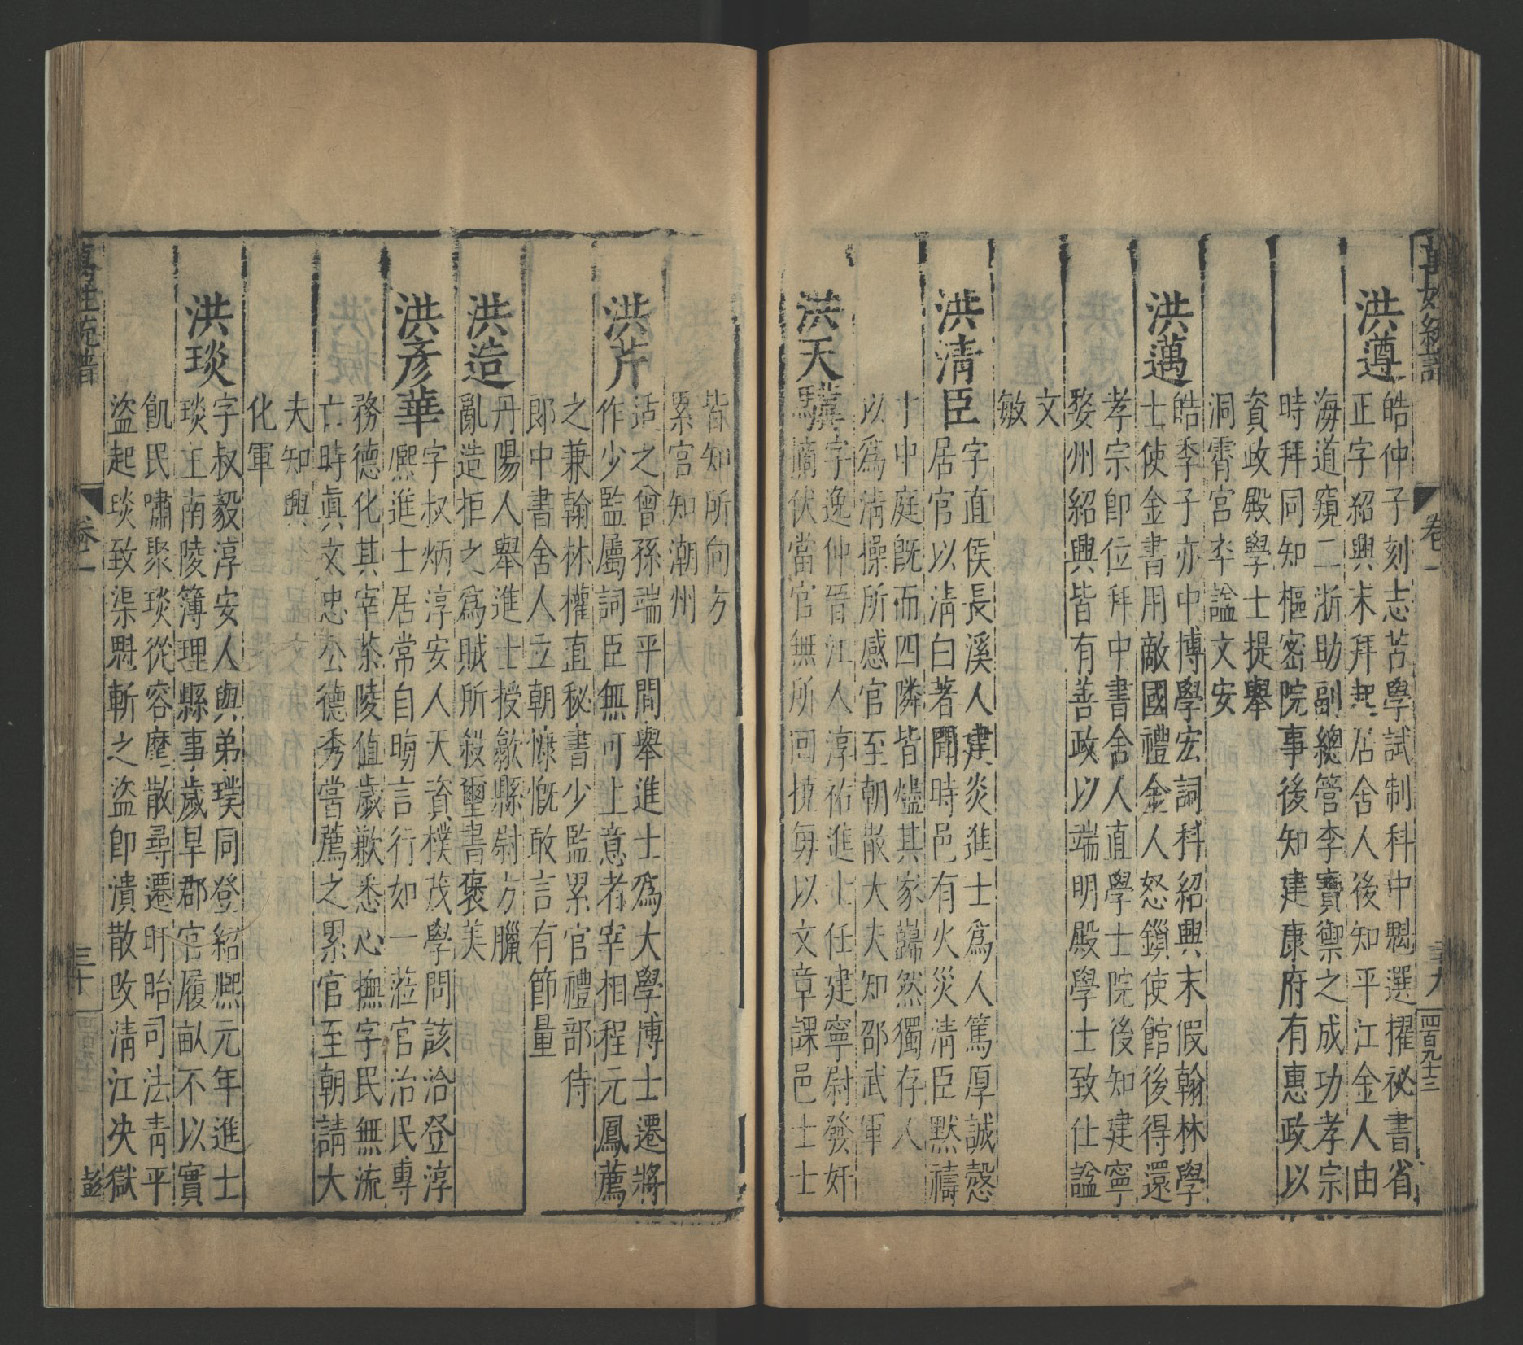 萬姓統譜
卷一
三十九
四百九十三
洪遵
皓仲子刻志苦學試制科中魁選擢祕書省
正字紹興末拜起居舍人後知平江金人由
海道窺二浙助副總管李寶禦之成功孝宗
時拜同知樞密院事後知建康府有惠政以
資政殿學士提舉
洞霄宮卒謚文安
洪邁
皓季子亦中博學宏詞科紹興末假翰林學
士使金書用敵國禮金人怒鎖使館後得還
孝宗即位拜中書舍人直學士院後知建寧
婺州紹興皆有善政以端明殿學士致仕謚
文
敏
洪清臣
字直侯長溪人建炎進士為人篤厚誠愨
居官以清白著聞時邑有火災清臣默禱
于中庭既而四隣皆燼其家巋然獨存人
以為清操所感官至朝散大夫知邵武軍
洪天驥
字逸仲晉江人淳祐進士任建寧尉發奸
擿伏當官無所回撓每以文章課邑士士
皆知所向方
累官知潮州
洪芹
适之曾孫端平間舉進士為大學博士遷將
作少監屬詞臣無可上意者宰相程元鳳薦
之兼翰林權直秘書少監累官禮部侍
郎中書舍人立朝慷慨敢言有節量
洪造
丹陽人舉進士授歙縣尉方臘
亂造拒之為賊所殺璽書褒美
洪彥華
字叔炳淳安人天資樸茂學問該洽登淳
熙進士居常自晦言行如一蒞官治民專
務德化其宰茶陵值歲歉悉心撫字民無流
亡時真文忠公德秀嘗薦之累官至朝請大
夫知興
化軍
洪琰
字叔毅淳安人與弟璞同登紹熙元年進士
琰工南陵簿理縣事歲旱郡官履畝不以實
飢民嘯聚琰從容麾散尋遷盱眙司法青平
盜起琰致渠魁斬之盜即潰散改清江決獄
萬姓統譜
卷一
三十
彭